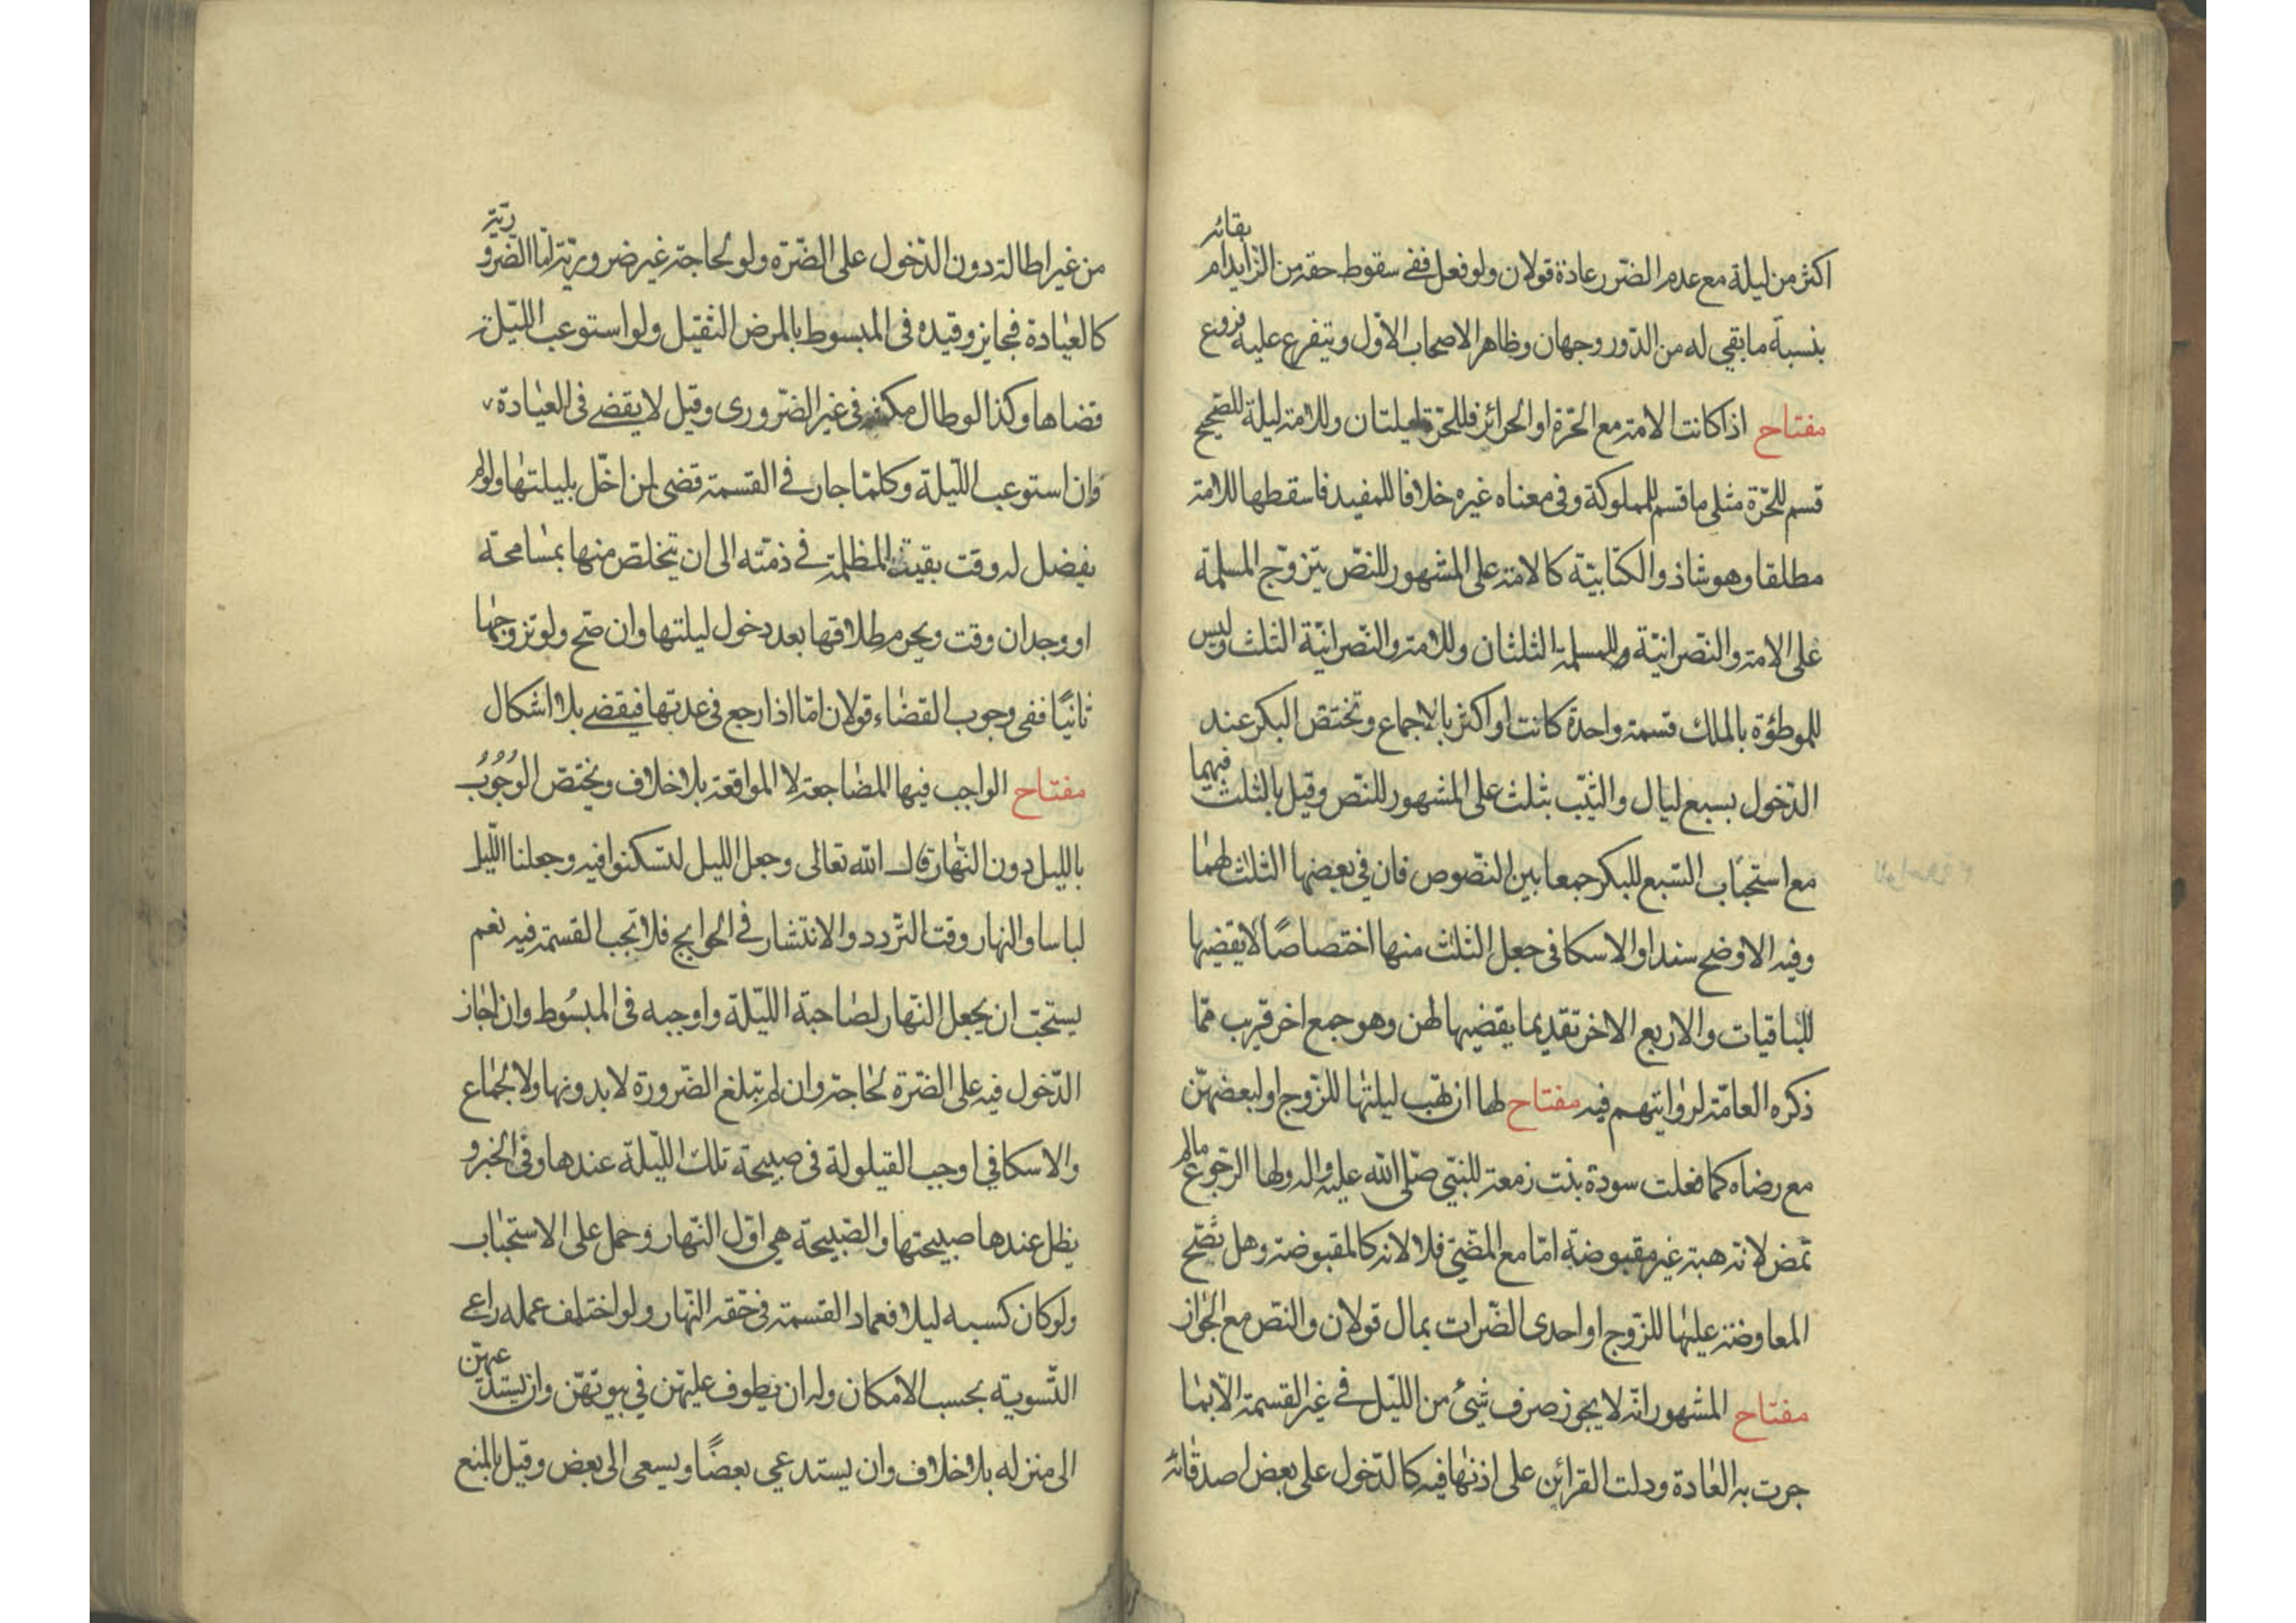 اكثر من ليلة مع عدم الضّرر عادة قولان ولو فعل ففى سقوط حقه من الزايد ام بقائه
بنسبة ما بقي له من الدّور وجهان وظاهر الاصحاب الاوّل ويتفرع عليه فروع
مفتاح اذا كانت الامة مع الحرّة او الحرائر فللحرّة ليلتان وللامة ليلة للصّحيح
قسم للحّرة مثلى ما قسم للمملوكة وفى معناه غيره خلافا للمفيد فاسقطها للامة
مطلقا وهو شاذ والكتابيّة كالامة على المشهور للنصّ يتزوّج المسلمة
على الامة والنّصرانيّة وللمسلمة الثلثان وللامة والنّصرانيّة الثلث وليس
للموطؤة بالملك قسمة واحدة كانت او اكثر بالاجماع وتختصّ البكر عند
الدّخول بسبع ليال والثيّب بثلث على المشهور للنصّ وقيل بالثلث فيهما
مع استحباب السّبع للبكر جمعا بين النّصوص فان فى بعضها الثلث لهما
وفيه الاوضح سندا والاسكافى جعل الثلث منها اختصاصًا لا يقضيها
للباقيات والاربع الاخر تقديما يقضيها لهن وهو جمع اخر قريب ممّا
ذكره العامّة لروايتهم فيه مفتاح لها ان تهب ليلتها للزّوج او لبعضهنّ
مع رضاه كما فعلت سودة بنت زمعة للنبّي صلّى الله عليه واله ولها الرّجوع ما لم
تمض لانّه هبة غير مقبوضة امّا مع المضّي فلا لانه كالمقبوضة وهل تصّح
المعاوضة عليها للزّوج او احدى الضّرات بمال قولان والنّص مع الجواز
مفتاح المشهور انّه لا يجوز صرف شئ من اللّيل فى غير القسمة الّا بما
جرت به العادة ودلت القرائن على اذنها فيه كالدّخول على بعض اصدقائه
من غير اطالة دون الدّخول على الضّرة ولو لحاجة غير ضروريّة امّا الضّروريّة
كالعيادة فجايز وقيده فى المبسوط بالمرض الثقيل ولو استوعب اللّيلة
قضاها وكذا لو طال مكثه فى غير الضّرورى وقيل لا يقضى فى العيادة
وان استوعب اللّيلة وكلمّا جار فى القسمة قضى لمن اخّل بليلتها ولو لم
يفضل له وقت بقيت المظلمة فى ذمّته الى ان يتخلّص منها بمسامحة
او وجدان وقت ويحرم طلاقها بعد دخول ليلتها وان صّح ولو تزوجها
ثانيًا ففى وجوب القضاء قولان امّا اذا رجع فى عدتها فيقضى بلا اشكال
مفتاح الواجب فيها المضاجعة لا المواقعة بلا خلاف ويختصّ الوجوب
بالليل دون النّهار قال الله تعالى وجعل الليل لتسكنوا فيه وجعلنا اللّيل
لباسا والنهار وقت التّردد والانتشار فى الحوايج فلا تجب القسمة فيه نعم
يستحّب ان يجعل النّهار لصاحبة اللّيلة واوجبه فى المبسُوط وان اجاز
الدّخول فيه على الضّرة لحاجة وان لم تبلغ الضّرورة لا بدونها ولا لجماع
والاسكافي اوجب القيلولة فى صبيحة تلك اللّيلة عندها وفى الخبر و
يظل عندها صبيحتها والصّبيحة هى اوّل النّهار وحمل على الاستحباب
ولو كان كسبه ليلا فعماد القسمة فى حّقه النّهار ولو اختلف عمله راعى
التّسوية بحسب الامكان وله ان يطوف عليهنّ في بيوتهنّ وان يستدعيهنّ
الى منزله بلا خلاف وان يستدعي بعضًا ويسعى الى بعض وقيل بالمنع